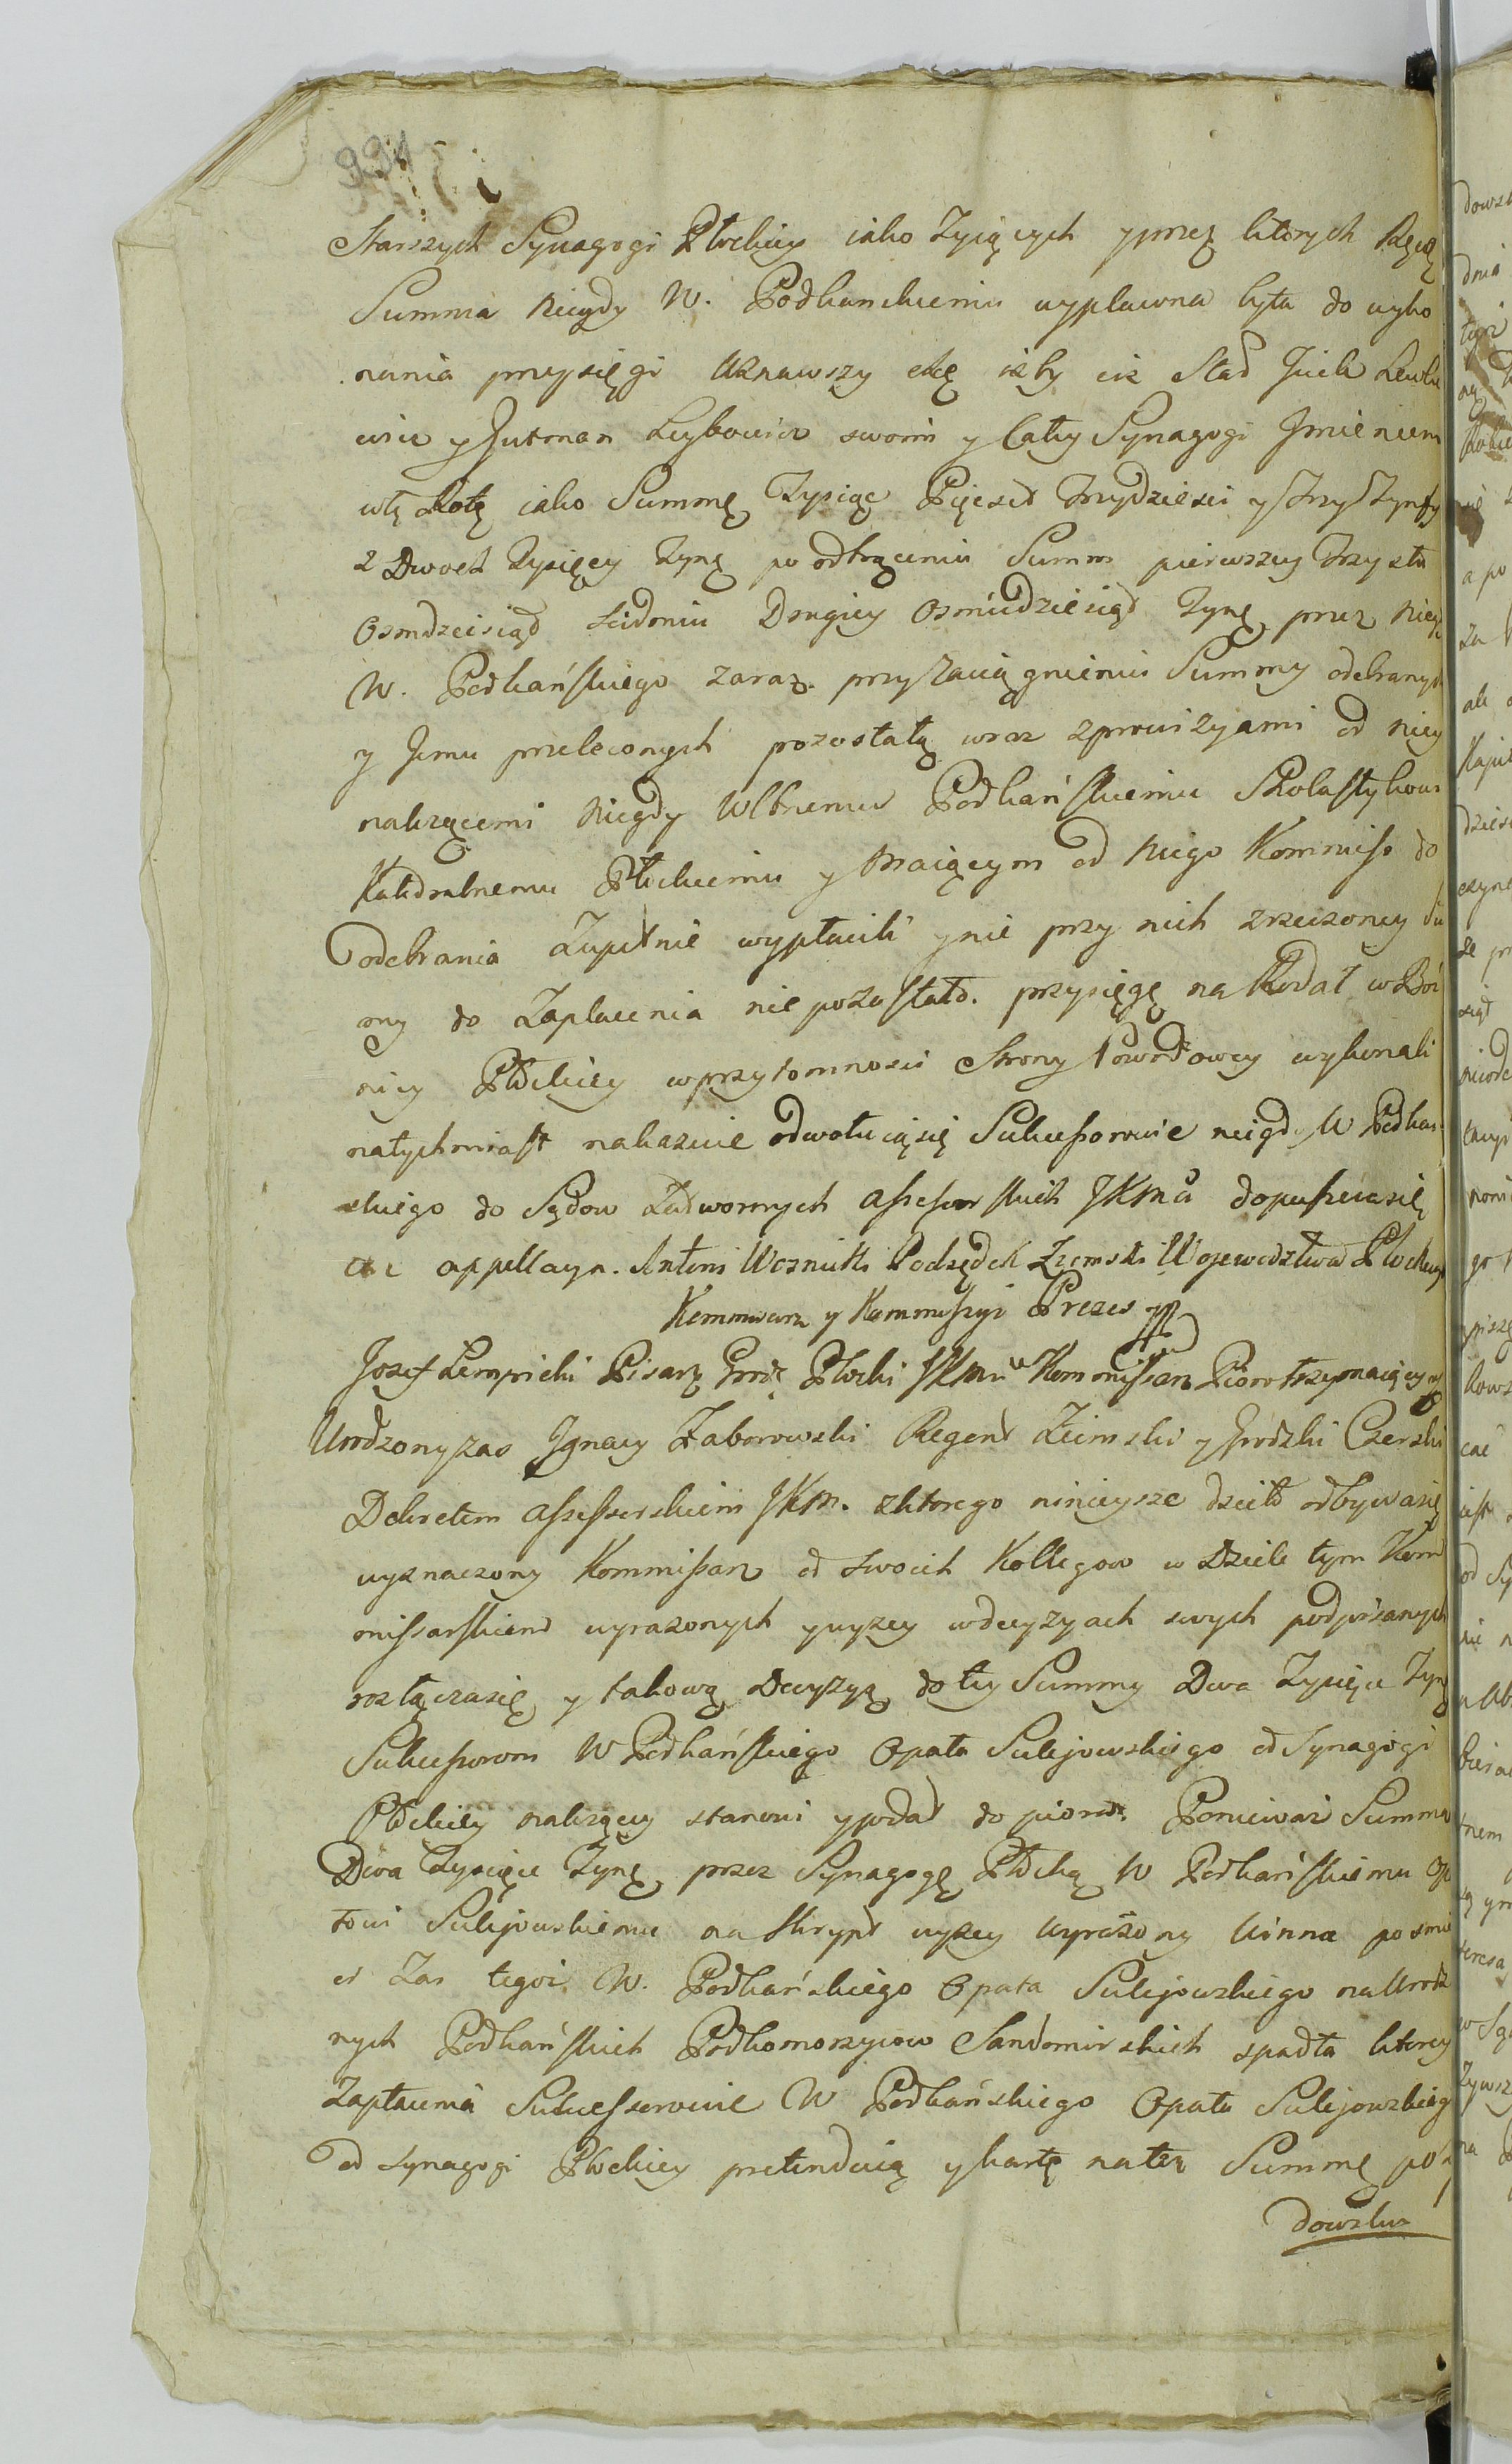 Starszych Synagogi Płockiey iako Zyiących yprzez ktorych Ręce
Summa niegdy W. Podkanskiemu wypłacona była do wyko
nania przysięgi Uznawszy chcę iżby ciż Stad Lewko
wicz y Gutman Leybowicz swoim y Całey Synagogi Jmieniem
wtę Rotę iako Summę Tysiąc Pięcset Trzydziesci y Trzy Tynfy
z Dwoch Tysięcy Tynf. po odtrąceniu Summ pierwszey Trzysta
Osmdziesiąd Siedmiu Drugiey Osmudziesiąd Tynf. przez niegdy
W. Podkańskiego zaraz przy Zaciągnieniu Summy odebranych
y Jemu przeleconych pozostałą wraz zprowizyami od niey
należącemi niegdy Wlbnemu Podkańskiemu Skolastykowi
Katedralnemu Płockiemu y Maiącym od niego Kommiss do
odebrania Zupełnie wypłacili y nie przy nich zrzeczoney Su
my do Zapłacenia nie pozostało. przysięgę na Rodał w Boż
nicy Płockiey wprzytomnosci Strony Powodowey wykonali
natychmiast nakazuie odwołuiącsię Sukcessorowie niegdy W Podkań
skiego do Sądow Zadwornych Assessorskich JKMci dopuszczasię
appellacya. Antoni Woznicki Podsędek Ziemski Wojewodztwa Płockiego
Kommissarz y Kommissyi Prezes
Jozef Lempicki Pisarz Grodz. Płocki JKMci Kommissarz Pioro trzymaiący
Urodzony zas Jgnacy Zaborowski Regent Ziemski y Grodzki Czerski
Dekretem assessorskim JKM. zktorego ninieysze dzieło odbywasię
wyznaczony Kommissarz od swoich Kollegow w Dziele tym Kom
missarskiem wyrazonych ywyzey wdecyzyach swych podpisanych
rozłączasię y takową Decyzyą do tey Summy Dwa Tysięce Tynf
Sukcessorom W Podkańskiego Opata Sulejowskiego od Synagogi
Płockiey należącey stanowi ypodał do piora. Ponieważ Summa
Dwa Tysięce Tynf. przez Synagogę Płocką W Podkańskiemu Opa
towi Sulejowskiemu na Skrypt wyzey Wyrażony Winna po smier
ci Zas tegoż W. Podkańskiego Opata Sulejowskiego na Urodzo
nych Podkańskich Podkomorzycow Sandomirskich spadła ktorey
Zapłacenia Sukcessorowie W Podkańskiego Opata Sulejowskiego
od Synagogi Płockiey pretenduią y kartę na też Summę po
dowska